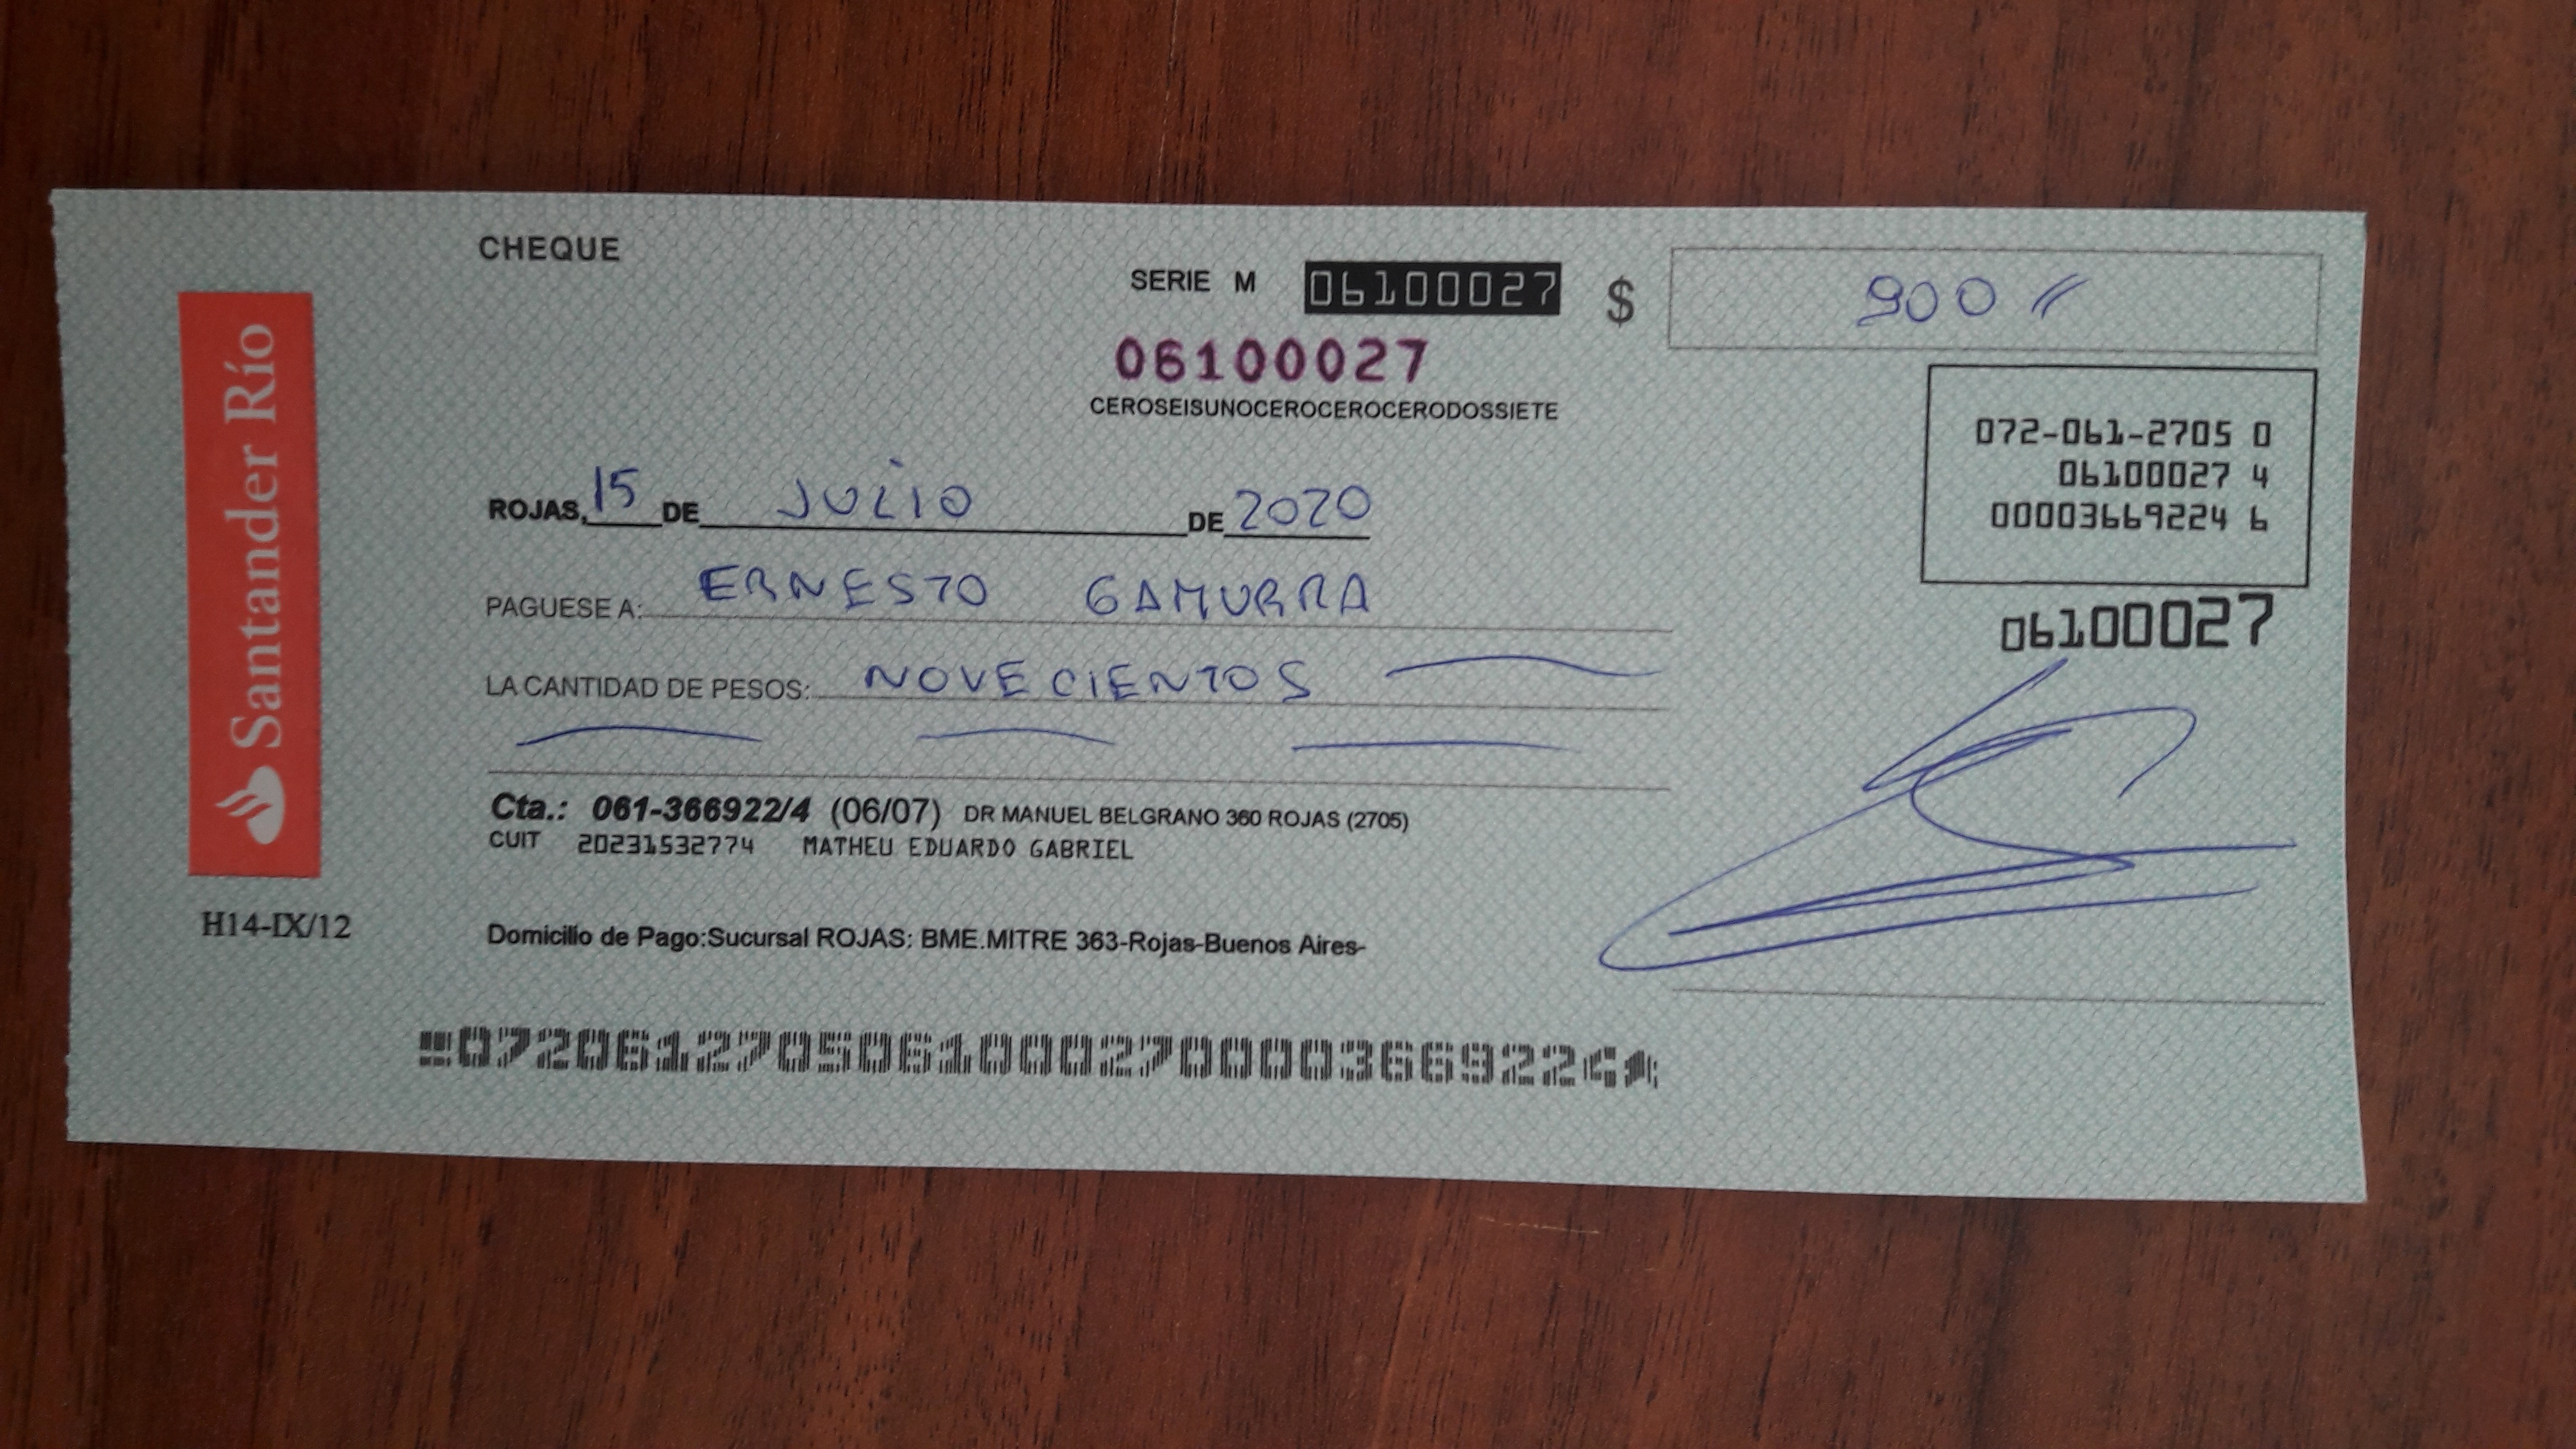 CHEQUE
SERIE M 06100027 $ 900
06100027
CEROSEISUNOCEROCEROCERODOSSIETE
Santander Río
072-061-2705 0
06100027 4
00003669224 6
06100027
ROJAS, 15 DE JULIO DE 2020
PAGUESE A: ERNESTO GAMURRA
LA CANTIDAD DE PESOS: NOVECIENTOS
Cta.: 061-366922/4 (06/07) DR MANUEL BELGRANO 360 ROJAS (2705)
CUIT 20231532774 MATHEU EDUARDO GABRIEL
H14-IX/12
Domicilio de Pago:Sucursal ROJAS: BME.MITRE 363-Rojas-Buenos Aires-
07206127050610002700003669224